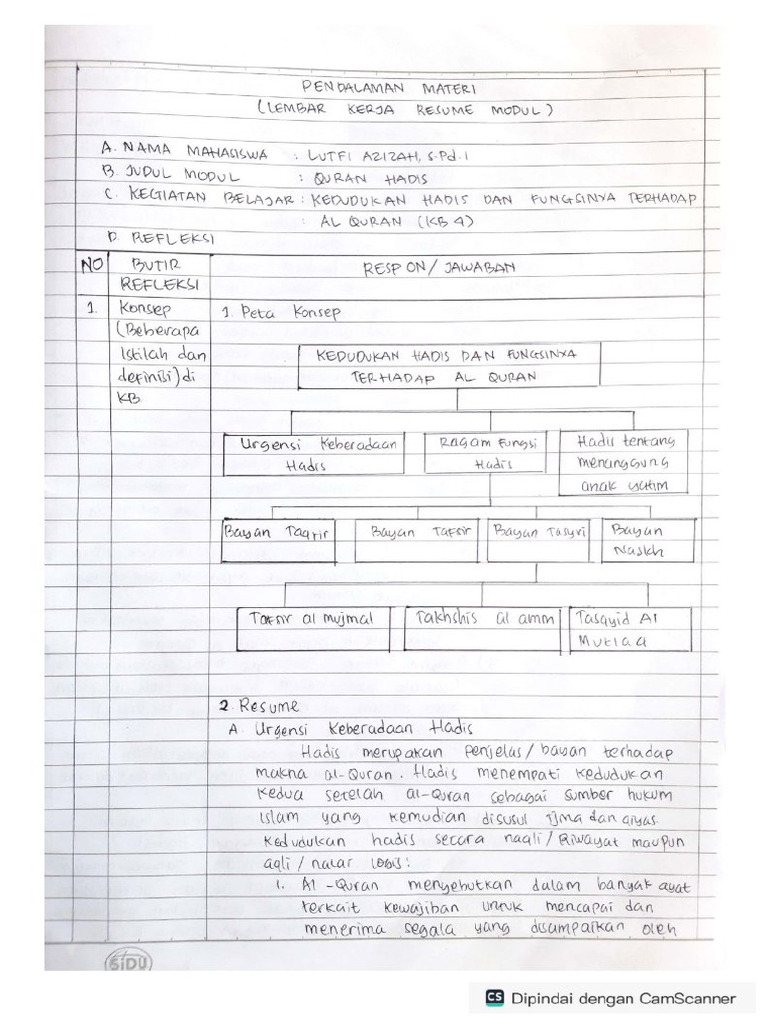 PENDALAMAN MATERI
(LEMBAR KERJA RESUME MODUL)
A. NAMA MAHASISWA : LUTFI AZIZAH, S.Pd.I
B. JUDUL MODUL : QURAN HADIS
C. KEGIATAN BELAJAR : KEDUDUKAN HADIS DAN FUNGSINYA TERHADAP
: AL QURAN (KB 4)
D. REFLEKSI
NO BUTIR REFLEKSI RESPON/JAWABAN
1. Konsep (Beberapa Istilah dan definisi) di KB
1. Peta Konsep
KEDUDUKAN HADIS DAN FUNGSINYA
TERHADAP AL QURAN
Urgensi Keberadaan
Hadis
Ragam Fungsi
Hadis
Hadis tentang
menanggung
anak yatim
Bayan Taqrir
Bayan Tafsir
Bayan Tasyri
Bayan
Naskh
Tafsir al mujmal
Takhshis al amm
Taqyid Al
Mutlaq
2. Resume
A. Urgensi Keberadaan Hadis
Hadis merupakan penjelas/bayan terhadap
makna al-Quran. Hadis menempati kedudukan
kedua setelah al-Quran sebagai sumber hukum
Islam yang kemudian disusul ijma dan qiyas.
Kedudukan hadis secara naqli/Riwayat maupun
aqli/nalar logis:
1. Al-Quran menyebutkan dalam banyak ayat
terkait kewajiban untuk mencapai dan
menerima segala yang disampaikan oleh
SIDU
CS Dipindai dengan CamScanner